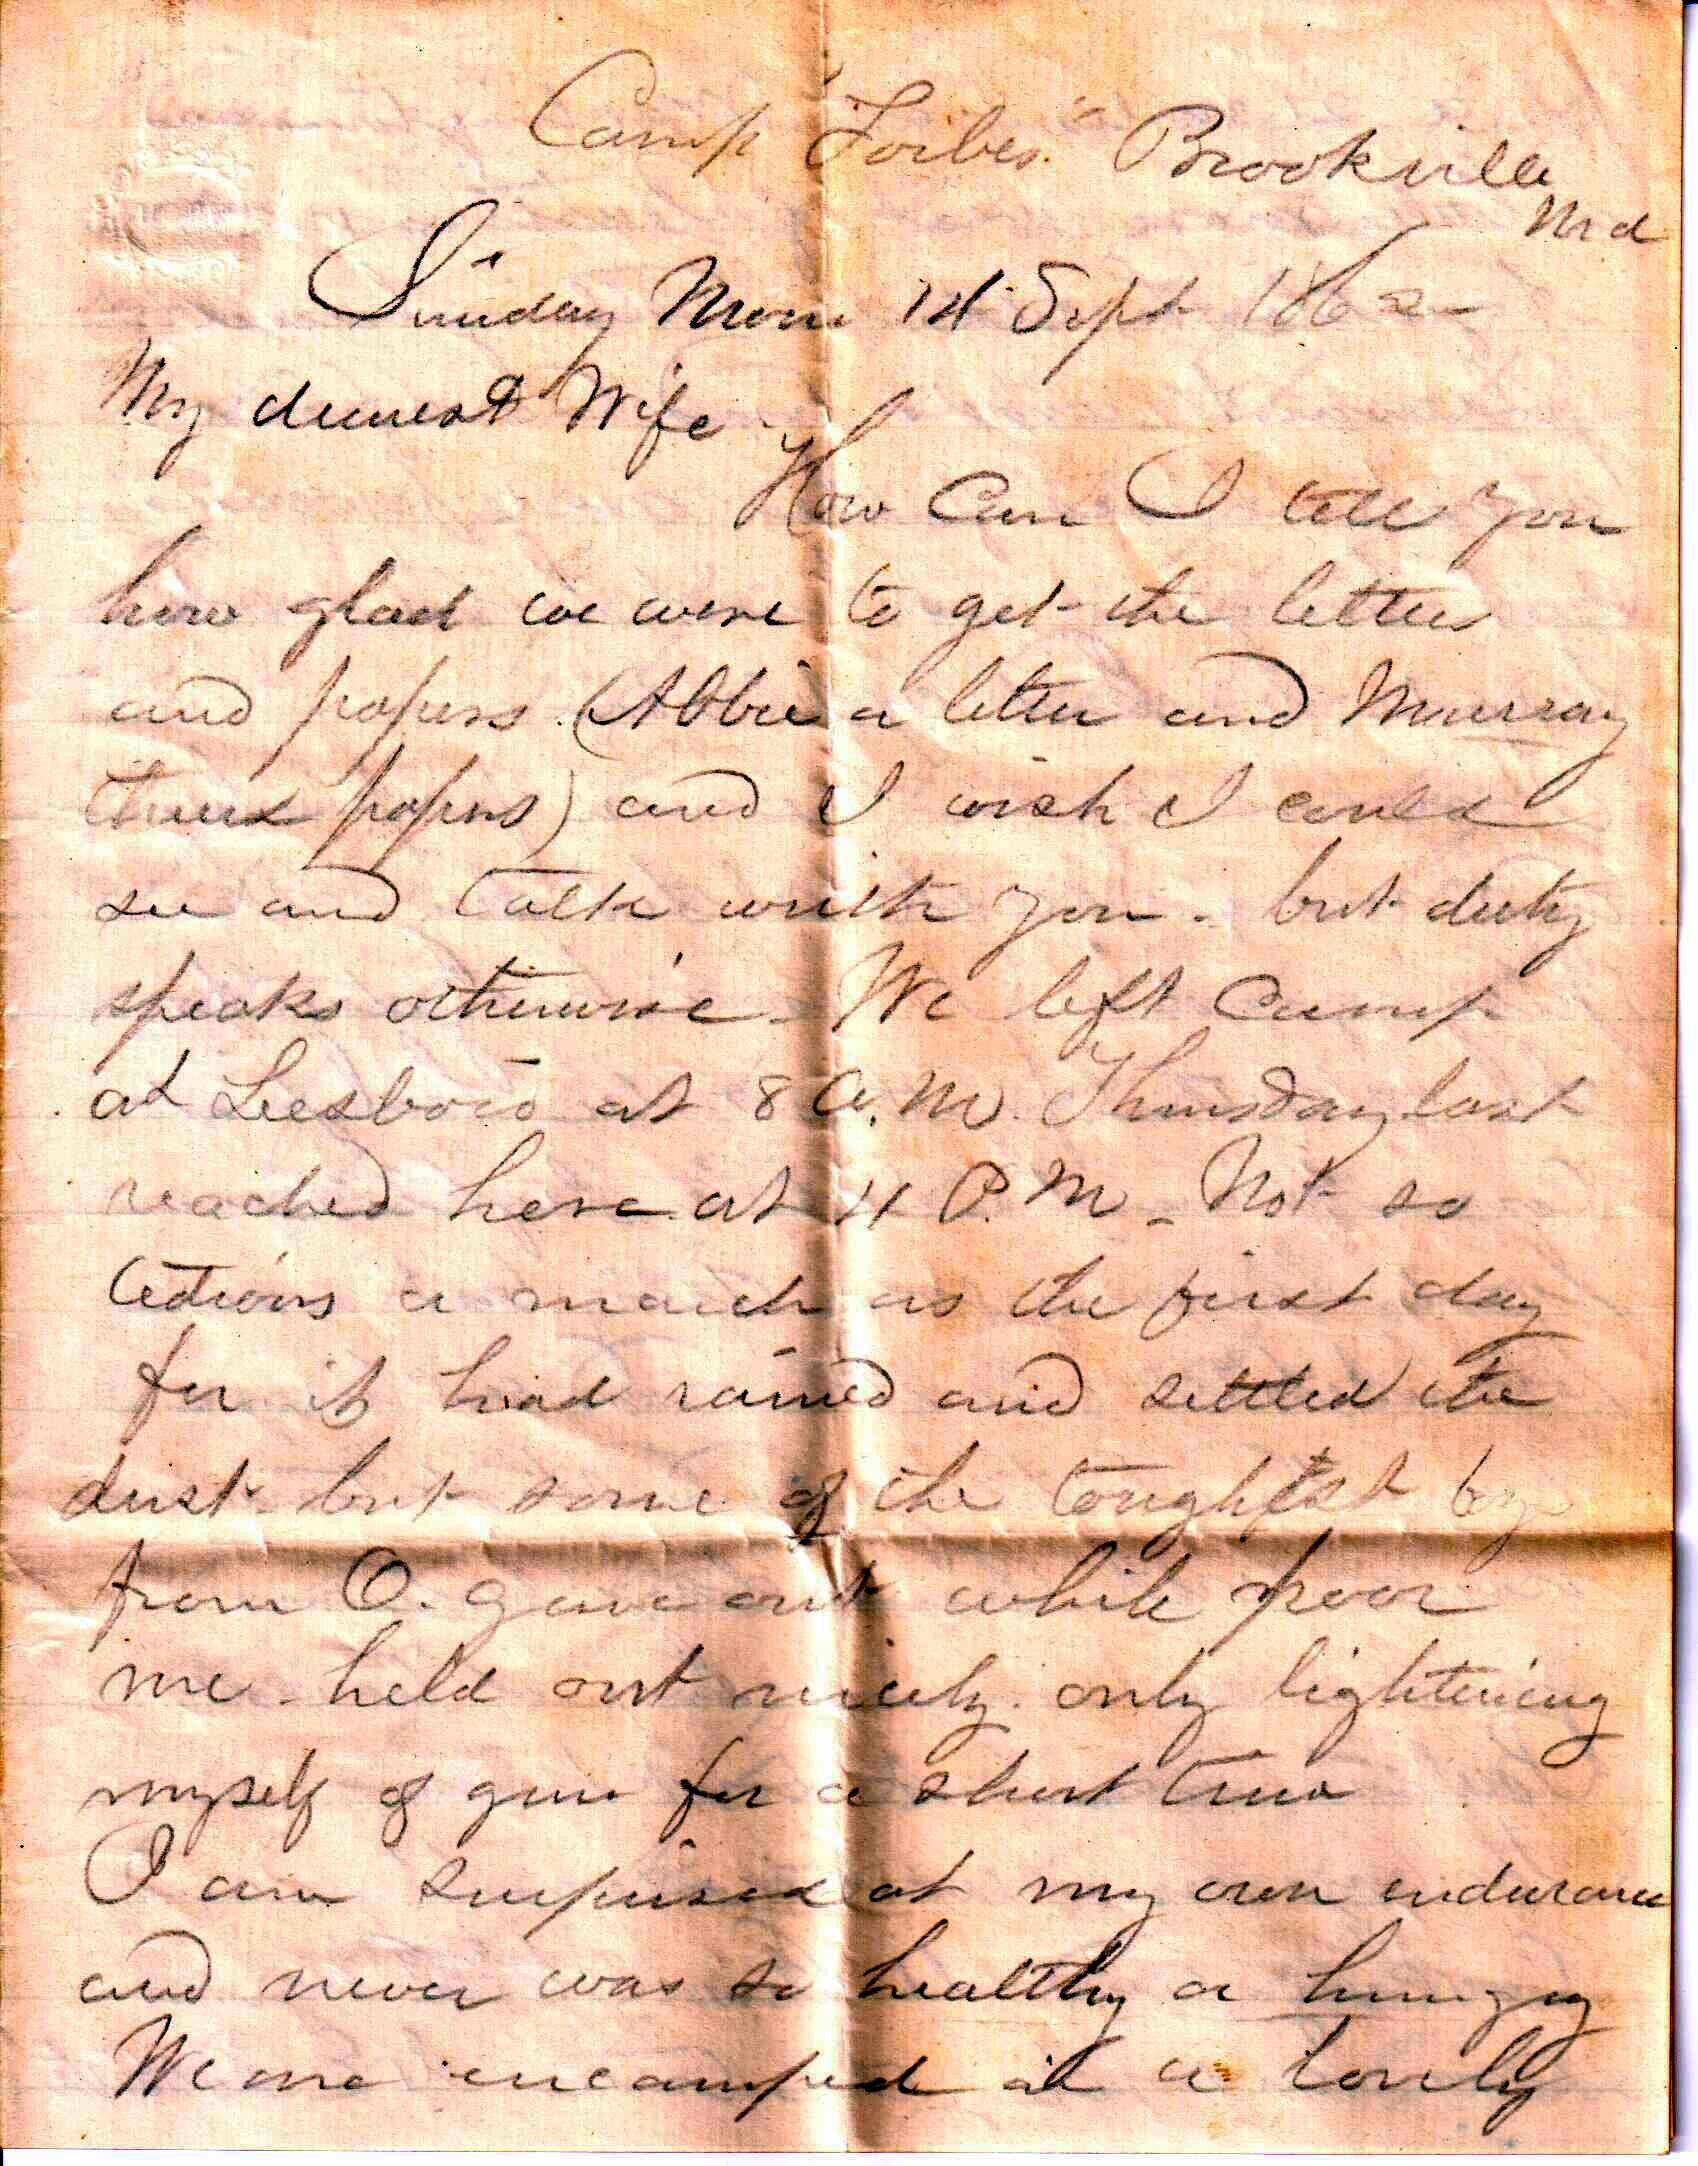 Camp "Forbes" Brookville
Md
Sunday Morn 14 Sept 1862
My dearest Wife
How Can I tell you
how glad we were to get the letters
and papers (Abbie a letter and Murray
three papers) and I wish I could
see and talk with you - but duty
speaks otherwise - We left Camp
at Leesboro at 8 A.M. Thursday last
reached here at 4 P.M - Not so
tedious a march as the first day
for it had rained and settled the
dust - but some of the toughest
from O. gave out while poor
me - held out nicely. only lightening
myself of gun for a short time
I am surprised at my own endurance
and never was so healthy or hungry
We are encamped in a lovely